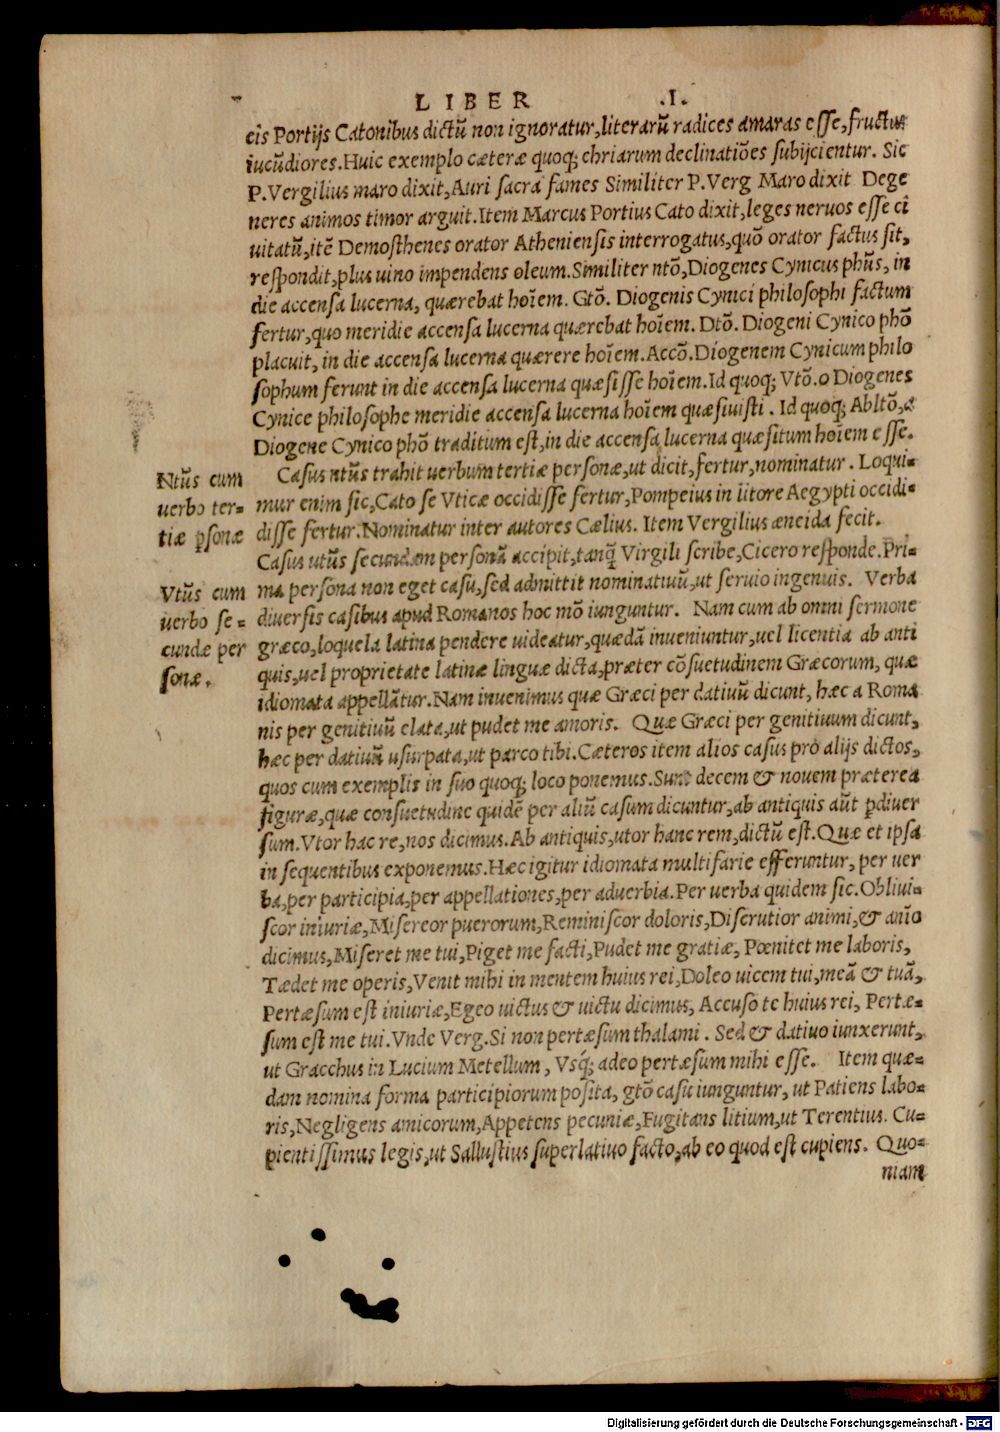 LIBER .I.
cis Portijs Catonibus dictū non ignoratur,literarū radices amaras esse,fructus
iucūdiores.Huic exemplo cæteræ quoq; chriarum declinatiões subijcientur. Sic
P.Vergilius maro dixit,Auri sacra fames Similiter P.Verg Maro dixit Dege
neres animos timor arguit.Item Marcus Portius Cato dixit,leges neruos esse ci
uitatū,itē Demosthenes orator Atheniensis interrogatus,quō orator factus sit,
respondit,plus uino impendens oleum.Similiter ntō,Diogenes Cynicus phūs, in
die accensa lucerna, quærebat hoīem. Gtō. Diogenis Cynici philosophi factum
fertur,quo meridie accensa lucerna quærebat hoīem. Dtō. Diogeni Cynico phō
placuit, in die accensa lucerna quærere hoīem.Accō.Diogenem Cynicum philo
sophum ferunt in die accensa lucerna quæsisse hoīem.Id quoq; Vtō.o Diogenes
Cynice philosophe meridie accensa lucerna hoīem quæsiuisti. Id quoq; Abltō,a
Diogene Cynico phō traditum est,in die accensa lucerna quæsitum hoīem esse.
Casus ntūs trahit uerbum tertiæ personæ,ut dicit,fertur,nominatur. Loqui-
Ntūs cum
uerbo ter-
tiæ psonæ
mur enim sic,Cato se Vticæ occidisse fertur,Pompeius in litore Aegypti occidi-
disse fertur.Nominatur inter autores Cælius. Item Vergilius æneida fecit.
Casus utūs secundam personā accipit,tanq̄ Virgili scribe,Cicero responde.Pri-
Vtūs cum
uerbo se-
cundæ per
sonæ.
ma persona non eget casu,sed admittit nominatiuū,ut seruio ingenuis. Verba
diuersis casibus apud Romanos hoc mō iunguntur. Nam cum ab omni sermone
græco,loquela latina pendere uideatur,quædā inueniuntur,uel licentia ab anti
quis,uel proprietate latinæ linguæ dicta,præter cōsuetudinem Græcorum, quæ
idiomata appellātur.Nam inuenimus quæ Græci per datiuū dicunt, hæc a Roma
nis per genitiuū elata,ut pudet me amoris. Quæ Græci per genitiuum dicunt,
hæc per datiuū usurpata,ut parco tibi.Cæteros item alios casus pro alijs dictos,
quos cum exemplis in suo quoq; loco ponemus.Sunt decem & nouem præterea
figuræ,quæ consuetudine quidē per aliū casum dicuntur,ab antiquis aūt pdiuer
sum.Vtor hac re,nos dicimus.Ab antiquis,utor hanc rem,dictū est.Quæ et ipsa
in sequentibus exponemus.Hæc igitur idiomata multifarie efferuntur, per uer
ba,per participia,per appellationes,per aduerbia.Per uerba quidem sic.Obliui-
scor iniuriæ,Misereor puerorum,Reminiscor doloris,Discrutior animi,& aīo
dicimus,Miseret me tui,Piget me facti,Pudet me gratiæ, Pœnitet me laboris,
Tædet me operis,Venit mihi in mentem huius rei,Doleo uicem tui,meā & tuā,
Pertæsum est iniuriæ,Egeo uictus & uictu dicimus, Accuso te huius rei, Pertæ-
sum est me tui.Vnde Verg.Si non pertæsum thalami. Sed & datiuo iunxerunt,
ut Gracchus in Lucium Metellum, Vsq́; adeo pertæsum mihi esse. Item quæ-
dam nomina forma participiorum posita, gtō casu iunguntur, ut Patiens labo-
ris,Negligens amicorum,Appetens pecuniæ,Fugitans litium,ut Terentius. Cu-
pientissimus legis,ut Sallustius superlatiuo facto,ab eo quod est cupiens. Quo-
niam
Digitalisierung gefördert durch die Deutsche Forschungsgemeinschaft - DFG